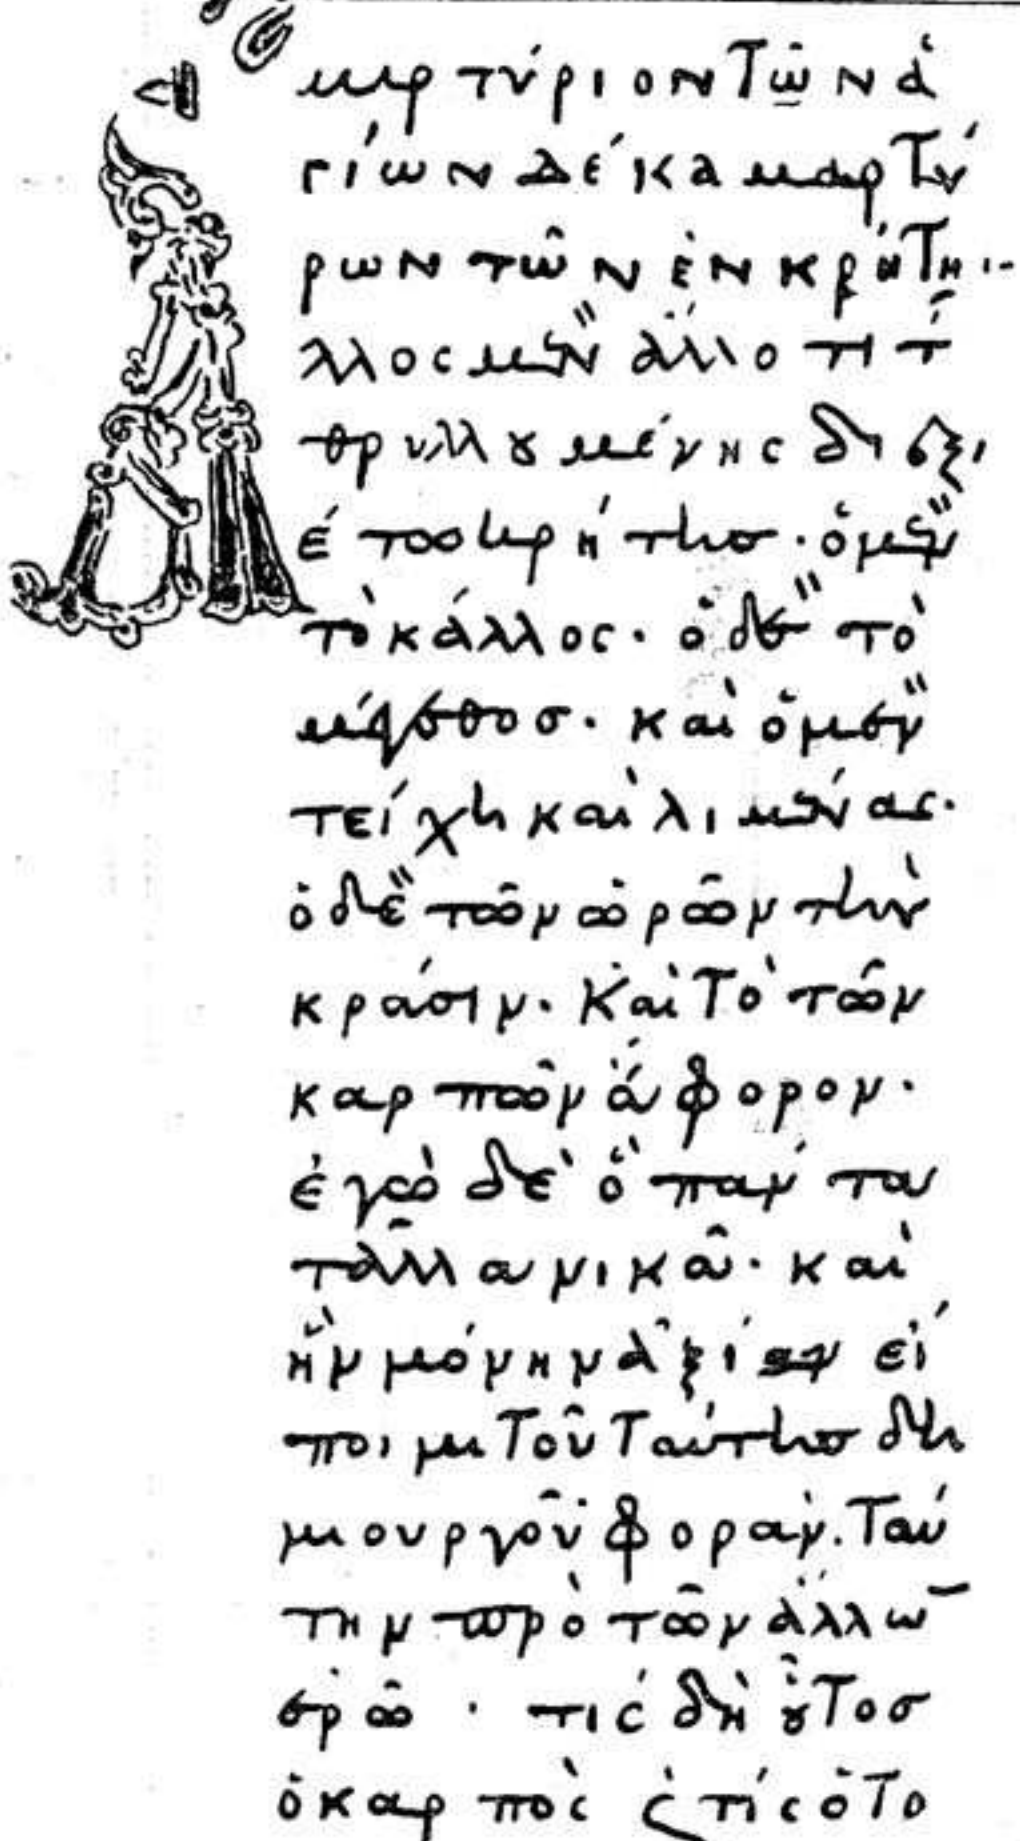 μαρτύριον τῶν ἁ
γίων δέκα μαρτύ
ρων τῶν ἐν κρήτηι·
Ἄλλος μὲν ἄλλο τι τ
θρυλλουμένης διέξι
έτω κρήτησ· ὁ μὲν
τὸ κάλλος· ὁ δὲ τὸ
μέγεθοσ· καὶ ὁ μὲν
τείχη καὶ λιμένας·
ὁ δὲ τῶν ὡρῶν τὴν
κράσιν· Καὶ τὸ τῶν
καρπῶν ἄφορον·
ἐγὼ δὲ ὃ πάντα
τἆλλα νικᾶ· καὶ
ἣν μόνην ἀξίαν εἴ
ποιμι τοῦ ταύτησ δη
μιουργοῦ φοράν· ταύ
την πρὸ τῶν ἄλλω
ἐρῶ · τίς δὴ οὗτοσ
ὁ καρπὸς ς τίς ὁ το